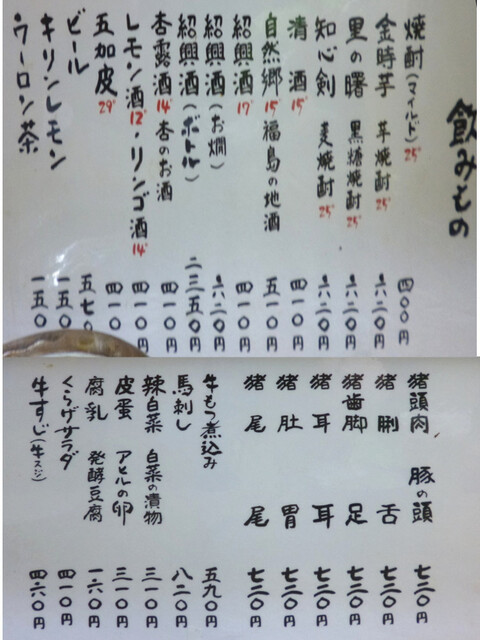 飲みもの
焼酎(マイルド)25° 四〇〇円
金時芋 芋焼酎25° 六二〇円
里の曙 黒糖焼酎25° 六二〇円
知心剣 麦焼酎25° 六二〇円
清酒15° 四一〇円
自然郷15° 福島の地酒 五一〇円
紹興酒17° 四一〇円
紹興酒(お燗) 六二〇円
紹興酒(ボトル) 二三五〇円
杏露酒14° 杏のお酒 四一〇円
レモン酒12°・リンゴ酒14° 四一〇円
五加皮29° 四一〇
ビール 五七〇
キリンレモン 一五〇
ウーロン茶 一五〇
猪頭肉 豚の頭 七二〇円
猪脷 舌 七二〇円
猪歯脚 足 七二〇円
猪耳 耳 七二〇円
猪肚 胃 七二〇円
猪尾 尾 七二〇円
牛もつ煮込み 五九〇円
馬刺し 八二〇円
辣白菜 白菜の漬物 三一〇円
皮蛋 アヒルの卵 三一〇円
腐乳 発酵豆腐 一六〇円
くらげサラダ 四一〇円
牛すじ(牛スジ) 四六〇円